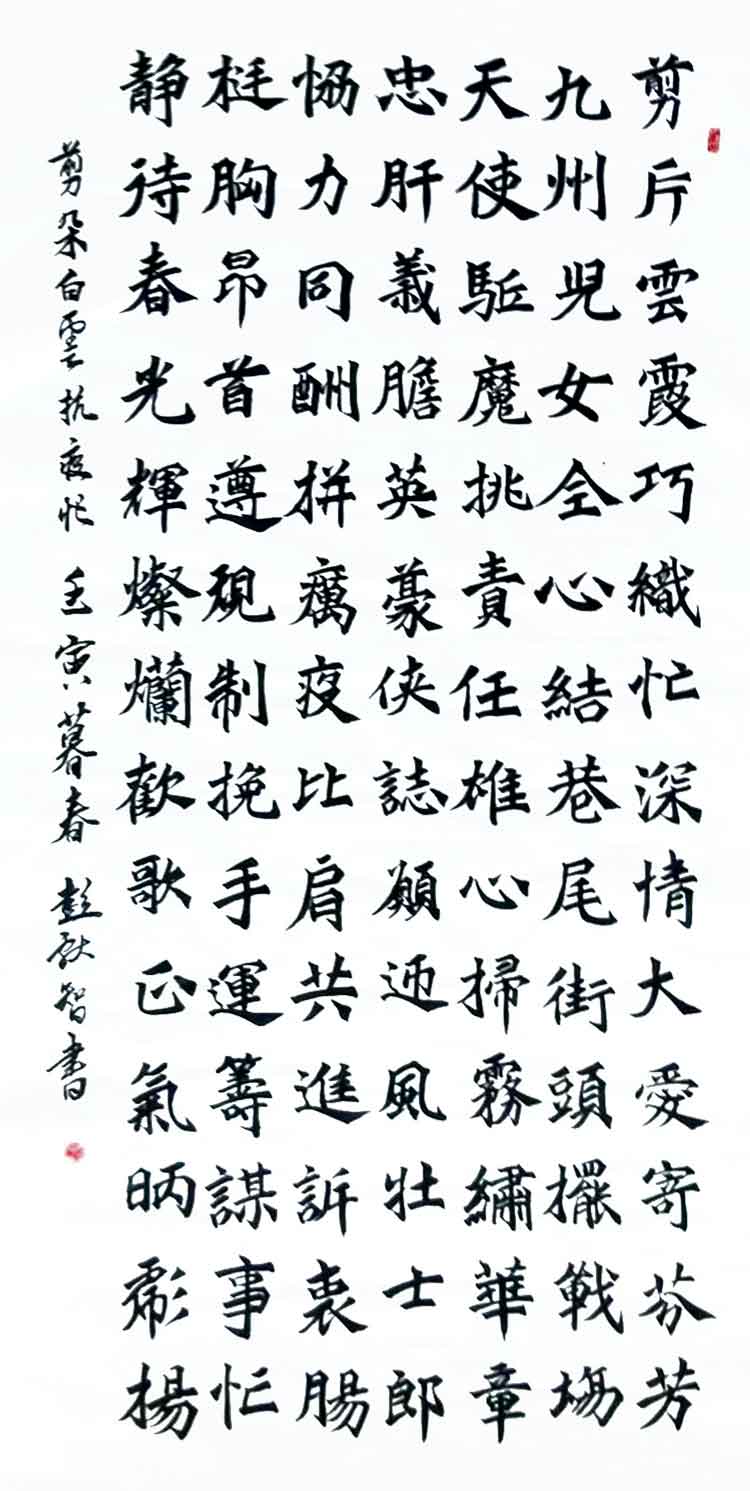 剪片雲霞巧織忙深情大愛寄芬芳
九州児女全心結巷尾街頭擺戰場
天使駈魔挑責任雄心掃霧繡華章
忠肝義膽英豪俠誌願迎風壯士郎
恊力同酬拼癘疫比肩共進訴衷腸
梃胸昂首遵規制挽手運籌謀事忙
静待春光輝燦爛歡歌正氣昞彰揚
剪朵白雲抗疫忙 壬寅暮春 彭 智書